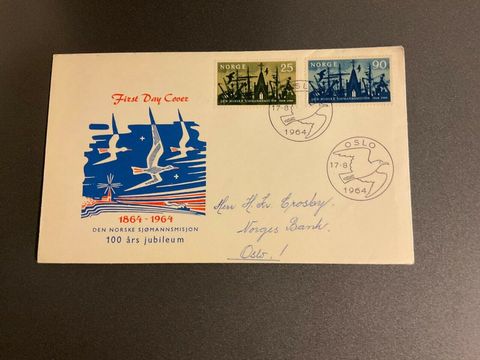 NORGE 25
DEN NORSKE SJØMANNSMISJON 1864-1964
NORGE 90
DEN NORSKE SJØMANNSMISJON 1864-1964
First Day Cover
17-8
1964
OSLO
17-8
1964
1864-1964
DEN NORSKE SJØMANNSMISJON
100 års jubileum
Herr H. Crosby.
Norges Bank,
Oslo.!